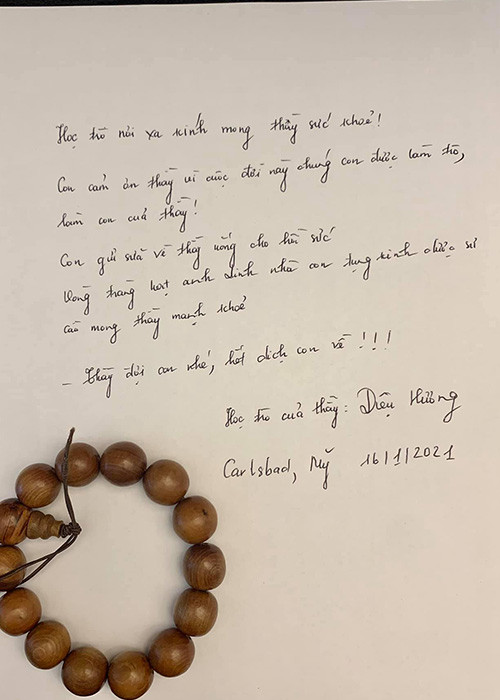 Học trò nơi xa kính mong thầy sức khoẻ!
Con cảm ơn thầy vì cuộc đời này chúng con được làm trò,
làm con của thầy!
Con gửi sữa về thầy uống cho hồi sức
Vòng tràng hạt anh Linh nhà con tụng kinh dược sư
cầu mong thầy mạnh khoẻ
- thầy đợi con nhé, hết dịch con về!!!
Học trò của thầy: Diệu Hương
Carlsbad, Mỹ 16/1/2021